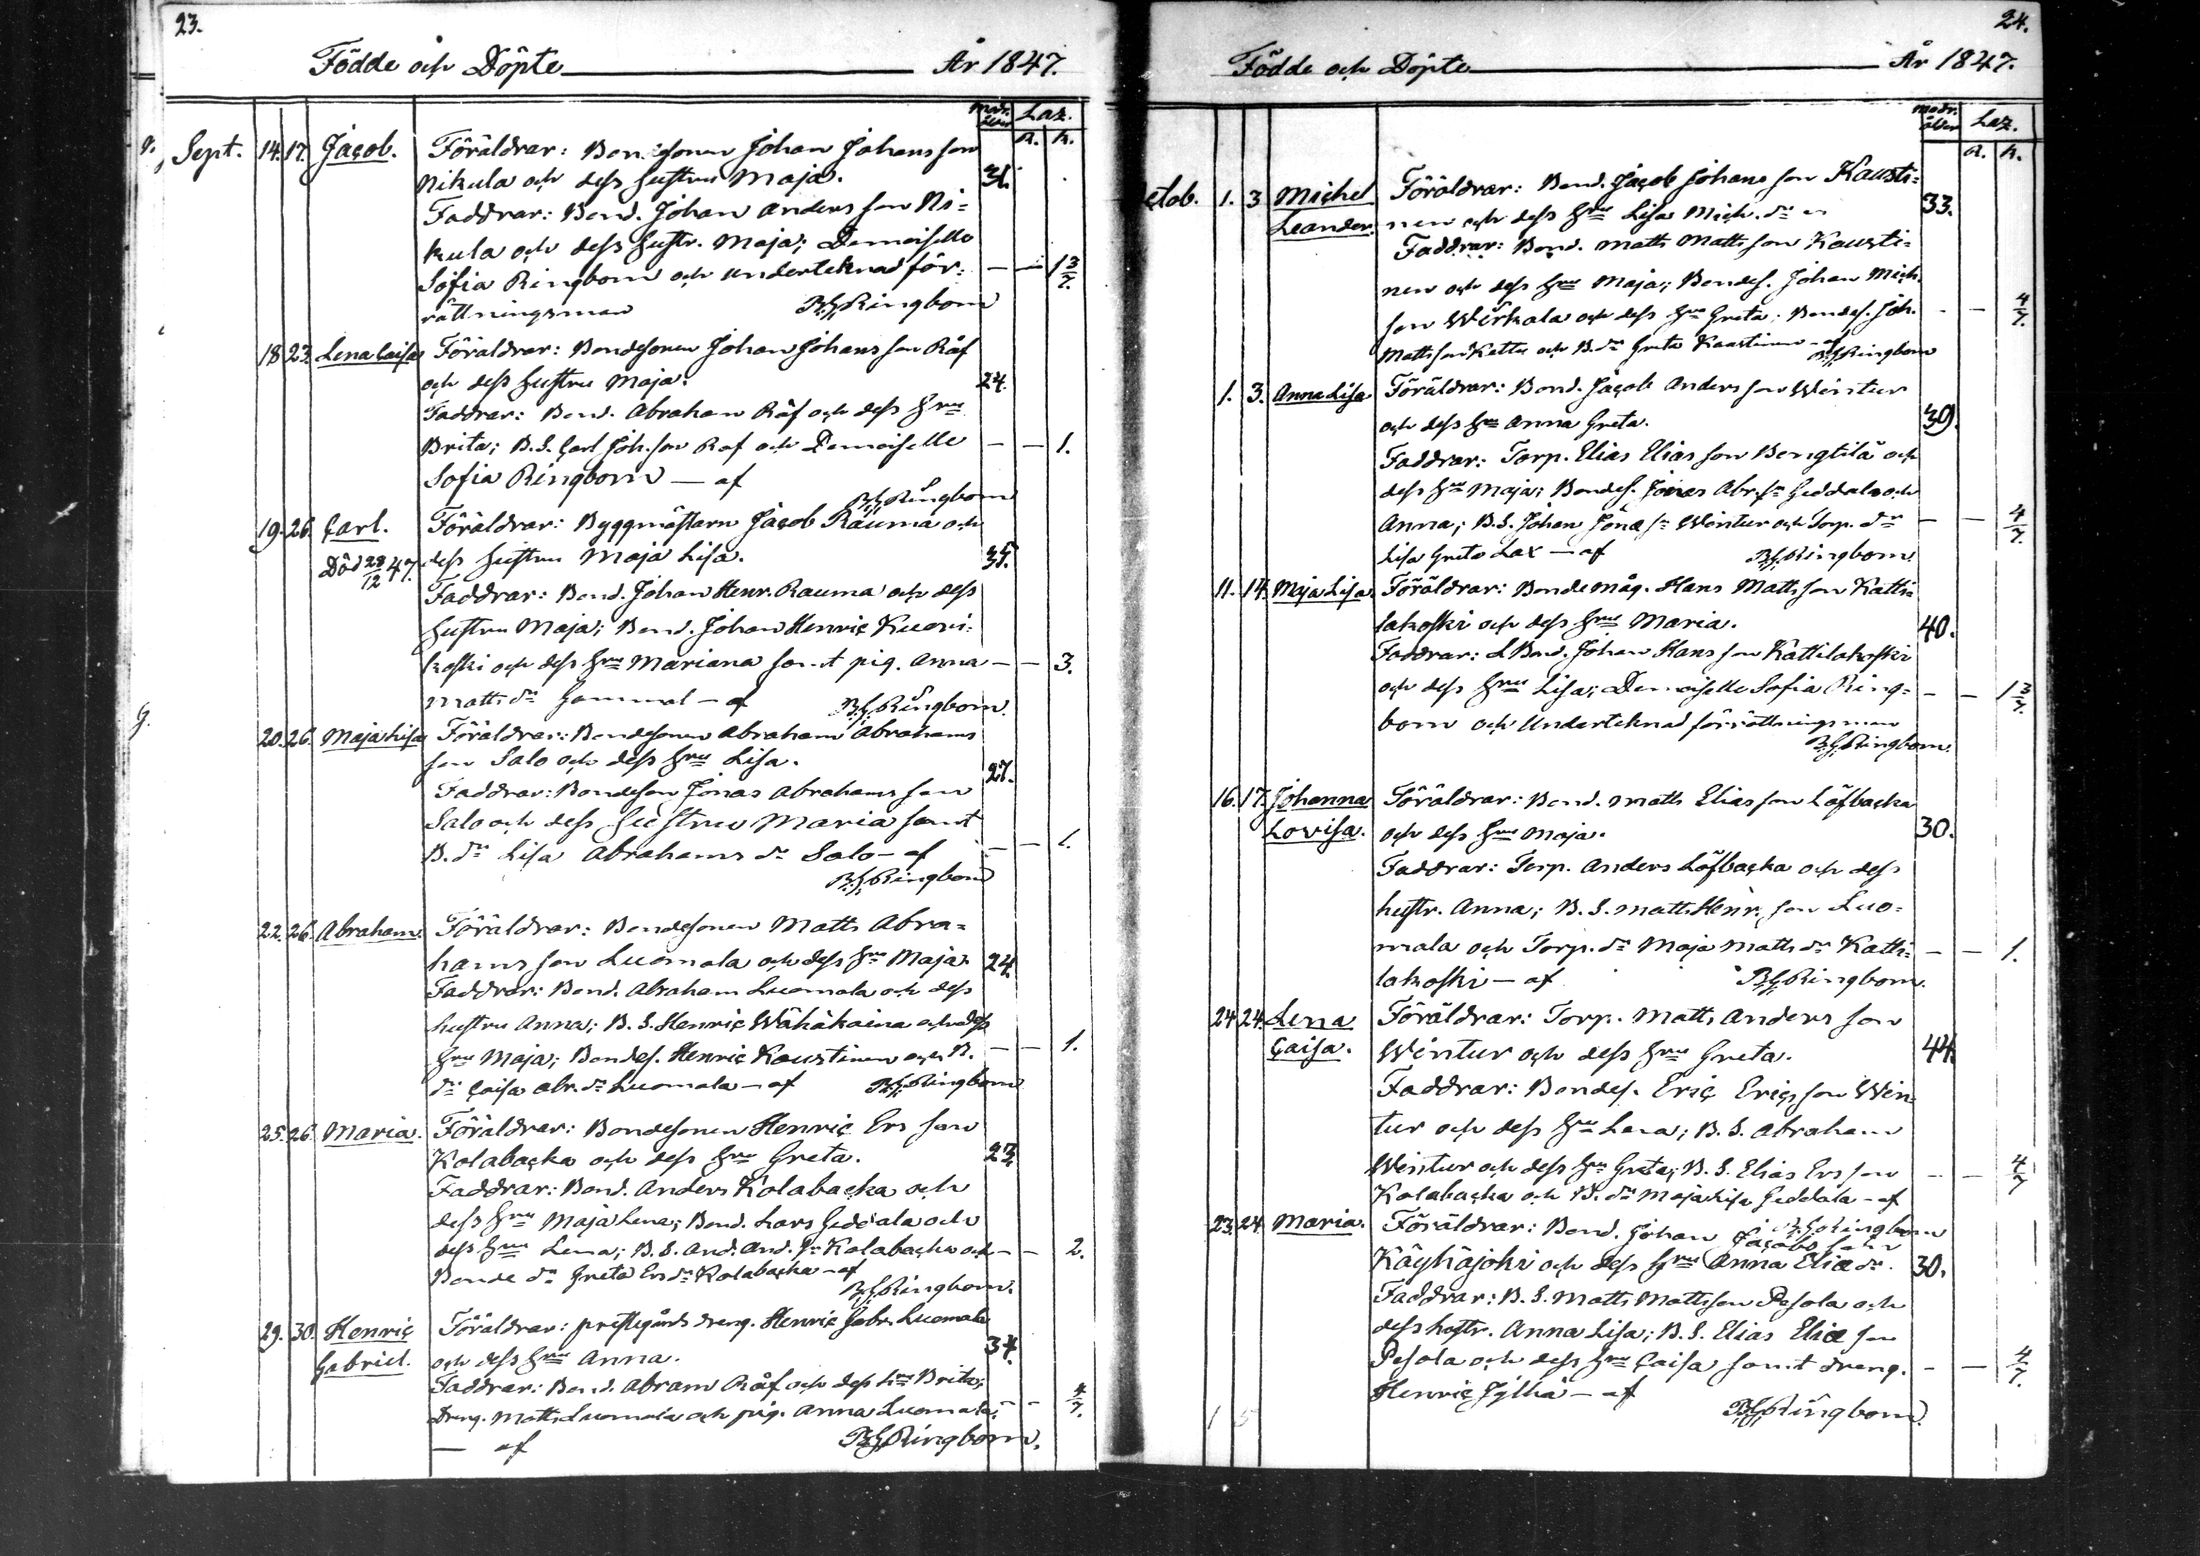 23.
Födde och Döpte År 1847.
Modr. ålder Laz.
R. K.
Sept. 14. 17. Jacob. Föräldrar: Bondesonen Johan Johans son
Nikula och dess hustru Maja. 31.
Faddrar: Bond. Johan Anders son Ni=
kula och dess hustr. Maja; Demoiselle
Sofia Ringbom och undertecknad för= — — 1 3/7.
rättningsman B.G. Ringbom
18. 23. Lena Caisa Föräldrar: Bondesonen Johan Johans son Räf
och dess hustru Maja. 24.
Faddrar: Bond. Abraham Räf och dess hru
Brita; B.S. Carl Joh. son Räf och Demoiselle — — 1.
Sofia Ringbom — af
B.G. Ringbom
19. 26. Carl. Föräldrar: Byggmästarn Jacob Rauma och
Död 28/12 47. dess hustru Maja Lisa. 35.
Faddrar: Bond. Johan Henr. Rauma och dess
hustru Maja; Bond. Johan Henric Kuori=
koski och dess hru Mariana samt pig. Anna — — 3.
Matts dr Gammal — af B.G. Ringbom.
20. 26. Maja Lisa Föräldrar: Bondesonen Abraham Abrahams
son Salo och dess hru Lisa. 27.
Faddrar: Bondeson Jonas Abrahams son
Salo och dess hustru Maria samt
B. dr Lisa Abrahams dr Salo — af — — 1.
B.G. Ringbom
22. 26. Abraham. Föräldrar: Bondesonen Matts Abra=
hams son Luomala och dess hru Maja 24.
Faddrar: Bond. Abraham Luomala och dess
hustru Anna; B.S. Henric Wähäkaina och dess
hru Maja; Bondes. Henric Kaustinen och B. — — 1.
dr Caisa Abr. dr Luomala — af B.G. Ringbom
25. 26. Maria. Föräldrar: Bondesonen Henric Ers son
Kolabacka och dess hru Greta. 23.
Faddrar: Bond. Anders Kolabacka och
dess hru Maja Lena; Bond. Lars Geddala och
dess hru Lena; B.S. And. And. sn Kolabacka och — — 2.
Bonde dr Greta Ers dr Kolabacka — af
B.G. Ringbom.
29. 30. Henric Föräldrar: prestgårds dreng. Henric Gabr. Luomala
Gabriel. och dess hru Anna. 34.
Faddrar: Bond. Abram Räf och dess hru Brita;
Dreng. Matts Luomala och pig. Anna Luomala; — — 4/7.
— af B.G. Ringbom.
24.
Födde och Döpte År 1847.
Modr. ålder Laz.
R. K.
Octob. 1. 3 Michel Föräldrar: Bond. Jacob Johans son Kausti=
Leander. nen och dess hru Lisa Mich. dr 33.
Faddrar: Bond. Matts Matts son Kausti=
nen och dess hru Maja; Bondes. Johan Mich.
son Wirkala och dess hru Greta; Bondes. Joh. — — 4/7.
Matts son Kattu och B. dr Greta Kaustinen — af
B.G. Ringbom
1. 3. Anna Lisa Föräldrar: Bond. Jacob Anders son Wintur
och dess hru Anna Greta. 39.
Faddrar: Torp. Elias Elias son Bengtilä och
dess hru Maja; Bondes. Jonas Abr. sn Geddala och
Anna; B.S. Johan Jona sn Wintur och Torp. dr — — 4/7
Lisa Greta Lax — af B.G. Ringbom.
11. 14. Maja Lisa. Föräldrar: Bondemåg. Hans Matts son Katti=
lakoski och dess hru Maria. 40.
Faddrar: L Bond. Johan Hans son Kattilakoski
och dess hru Lisa; Demoiselle Sofia Ring= — — 1 3/7.
bom och Undertecknad förrättningsman
B.G. Ringbom.
16. 17. Johanna Föräldrar: Bond. Matts Elias son Löfbacka
Lovisa. och dess hru Maja. 30.
Faddrar: Torp. Anders Löfbacka och dess
hustr. Anna; B.S. Matts Henr. son Luo=
mala och Torp. dr Maja Matts dr Katti= — — 1.
lakoski — af B.G. Ringbom.
24 24. Lena Föräldrar: Torp. Matts Anders son
Caisa. Wintur och dess hru Greta. 44.
Faddrar: Bondes. Eric Erics son Win=
tur och dess hru Lena; B.S. Abraham
Wintur och dess hru Greta; B.S. Elias Ers son — — 4/7
Kolabacka och B. dr Maja Lisa Geddala — af
B.G. Ringbom
23. 24. Maria. Föräldrar: Bond. Johan Jacobs son
Käyhäjoki och dess hru Anna Eliæ dr. 30.
Faddrar: B.S. Matts Mattsson Pesola och
dess hustr. Anna Lisa; B.S. Elias Eliæ son
Pesola och dess hru Caisa samt dreng. — — 4/7.
Henric Jylhä — af
B.G. Ringbom.